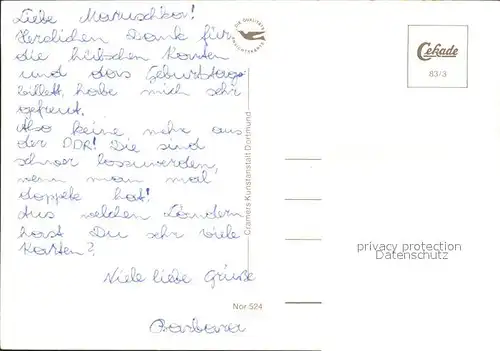 Liebe Maruschka!
Herzlichen Dank für
die hübschen Karten
und das Geburtstags-
billett, habe mich sehr
gefreut.
Also keine mehr aus
der DDR! Die sind
schwer loszuwerden,
wenn man mal
doppelte hat!
Aus welchen Ländern
hast Du sehr viele
Karten?
Viele liebe Grüsse
Barbara
Nor 524
Cramers Kunstanstalt Dortmund
DIE QUALITÄTS
Cekade
83/3
privacy protection
Datenschutz